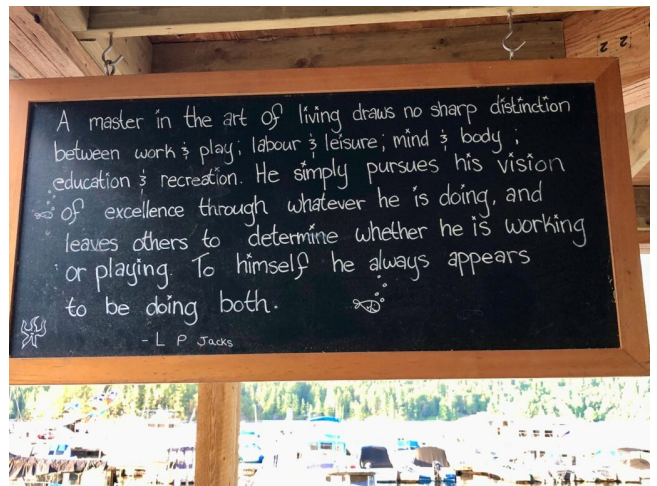 A master in the art of living draws no sharp distinction
between work & play; labour & leisure; mind & body;
education & recreation. He simply pursues his vision
of excellence through whatever he is doing, and
leaves others to determine whether he is working
or playing. To himself he always appears
to be doing both.
- L P Jacks